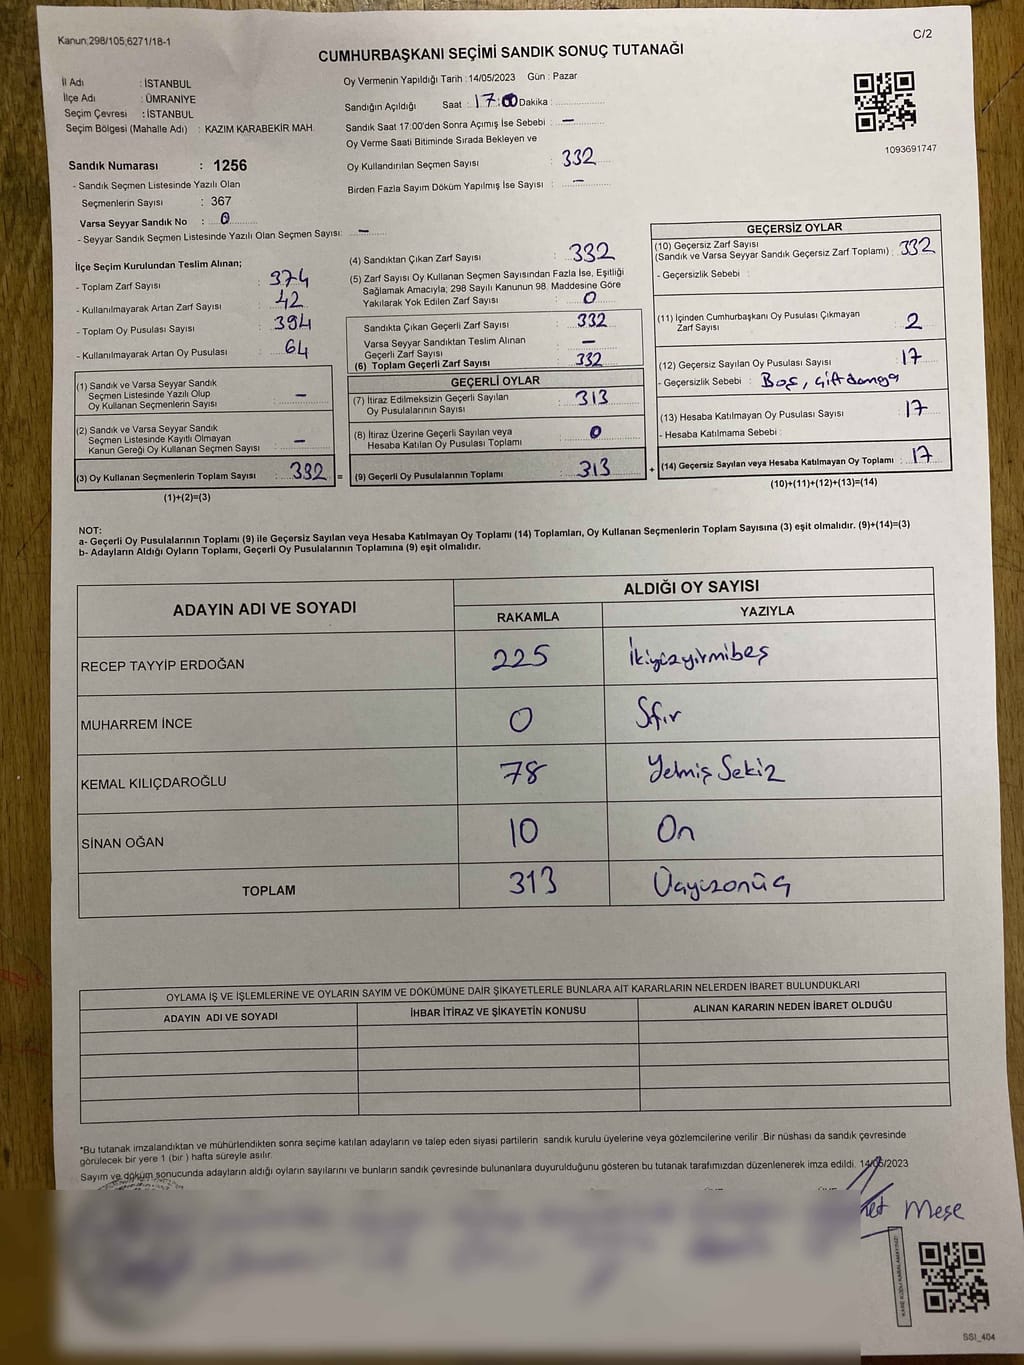 Kanun:298/105,6271/18-1
C/2
CUMHURBAŞKANI SEÇİMİ SANDIK SONUÇ TUTANAĞI
İl Adı : İSTANBUL
İlçe Adı : ÜMRANİYE
Seçim Çevresi : İSTANBUL
Seçim Bölgesi (Mahalle Adı) : KAZIM KARABEKİR MAH.
Oy Vermenin Yapıldığı Tarih : 14/05/2023 Gün : Pazar
Sandığın Açıldığı Saat : 17:00 Dakika :
Sandık Saat 17:00'den Sonra Açımış İse Sebebi : —
Oy Verme Saati Bitiminde Sırada Bekleyen ve
Oy Kullandırılan Seçmen Sayısı : 332
Birden Fazla Sayım Döküm Yapılmış İse Sayısı : —
1093691747
Sandık Numarası : 1256
- Sandık Seçmen Listesinde Yazılı Olan
Seçmenlerin Sayısı : 367
Varsa Seyyar Sandık No : 0
- Seyyar Sandık Seçmen Listesinde Yazılı Olan Seçmen Sayısı: —
İlçe Seçim Kurulundan Teslim Alınan;
- Toplam Zarf Sayısı : 374
- Kullanılmayarak Artan Zarf Sayısı : 42
- Toplam Oy Pusulası Sayısı : 394
- Kullanılmayarak Artan Oy Pusulası : 64
(1) Sandık ve Varsa Seyyar Sandık
Seçmen Listesinde Yazılı Olup
Oy Kullanan Seçmenlerin Sayısı : —
(2) Sandık ve Varsa Seyyar Sandık
Seçmen Listesinde Kayıtlı Olmayan
Kanun Gereği Oy Kullanan Seçmen Sayısı : —
(3) Oy Kullanan Seçmenlerin Toplam Sayısı : 332 =
(1)+(2)=(3)
(4) Sandıktan Çıkan Zarf Sayısı : 332
(5) Zarf Sayısı Oy Kullanan Seçmen Sayısından Fazla İse, Eşitliği
Sağlamak Amacıyla; 298 Sayılı Kanunun 98. Maddesine Göre
Yakılarak Yok Edilen Zarf Sayısı : 0
Sandıkta Çıkan Geçerli Zarf Sayısı : 332
Varsa Seyyar Sandıktan Teslim Alınan
Geçerli Zarf Sayısı : —
(6) Toplam Geçerli Zarf Sayısı : 332
GEÇERLİ OYLAR
(7) İtiraz Edilmeksizin Geçerli Sayılan
Oy Pusulalarının Sayısı : 313
(8) İtiraz Üzerine Geçerli Sayılan veya
Hesaba Katılan Oy Pusulası Toplamı : 0
(9) Geçerli Oy Pusulalarının Toplamı : 313 +
GEÇERSİZ OYLAR
(10) Geçersiz Zarf Sayısı
(Sandık ve Varsa Seyyar Sandık Geçersiz Zarf Toplamı) : 332
- Geçersizlik Sebebi :
(11) İçinden Cumhurbaşkanı Oy Pusulası Çıkmayan
Zarf Sayısı : 2
(12) Geçersiz Sayılan Oy Pusulası Sayısı : 17
- Geçersizlik Sebebi : Boş, çift damga
(13) Hesaba Katılmayan Oy Pusulası Sayısı : 17
- Hesaba Katılmama Sebebi :
(14) Geçersiz Sayılan veya Hesaba Katılmayan Oy Toplamı : 17
(10)+(11)+(12)+(13)=(14)
NOT:
a- Geçerli Oy Pusulalarının Toplamı (9) ile Geçersiz Sayılan veya Hesaba Katılmayan Oy Toplamı (14) Toplamları, Oy Kullanan Seçmenlerin Toplam Sayısına (3) eşit olmalıdır. (9)+(14)=(3)
b- Adayların Aldığı Oyların Toplamı, Geçerli Oy Pusulalarının Toplamına (9) eşit olmalıdır.
ADAYIN ADI VE SOYADI
ALDIĞI OY SAYISI
RAKAMLA YAZIYLA
RECEP TAYYİP ERDOĞAN 225 İkiyüzyirmibeş
MUHARREM İNCE 0 Sıfır
KEMAL KILIÇDAROĞLU 78 Yetmiş Sekiz
SİNAN OĞAN 10 On
TOPLAM 313 Üçyüzonüç
OYLAMA İŞ VE İŞLEMLERİNE VE OYLARIN SAYIM VE DÖKÜMÜNE DAİR ŞİKAYETLERLE BUNLARA AİT KARARLARIN NELERDEN İBARET BULUNDUKLARI
ADAYIN ADI VE SOYADI İHBAR İTİRAZ VE ŞİKAYETİN KONUSU ALINAN KARARIN NEDEN İBARET OLDUĞU
*Bu tutanak imzalandıktan ve mühürlendikten sonra seçime katılan adayların ve talep eden siyasi partilerin sandık kurulu üyelerine veya gözlemcilerine verilir. Bir nüshası da sandık çevresinde
görülecek bir yere 1 (bir ) hafta süreyle asılır.
Sayım ve döküm sonucunda adayların aldığı oyların sayılarını ve bunların sandık çevresinde bulunanlara duyurulduğunu gösteren bu tutanak tarafımızdan düzenlenerek imza edildi. 14/05/2023
Meşe
SSI_404